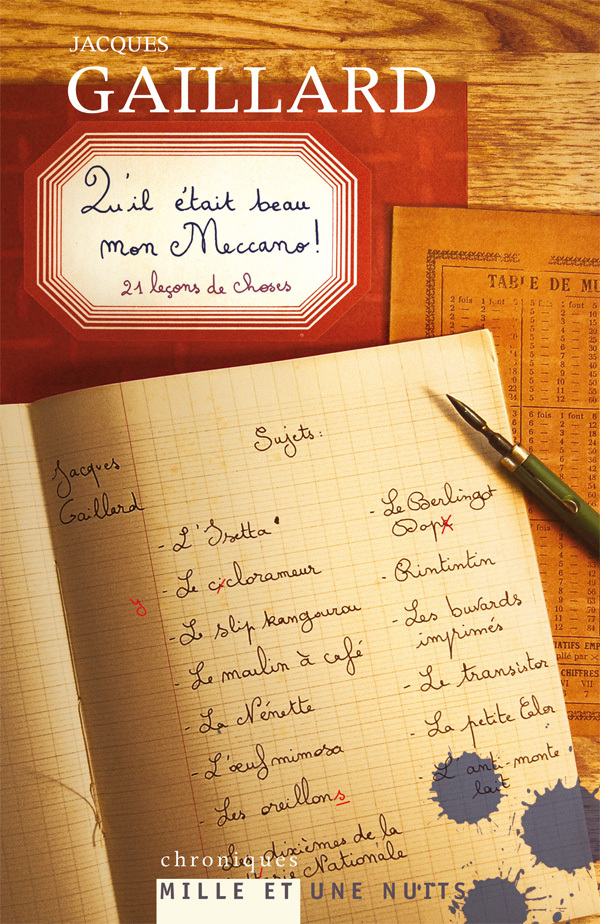 JACQUES
GAILLARD
Qu'il était beau
mon Meccano!
21 leçons de choses
TABLE DE MU
2 fois 1 font 5 fois 1 font
6 fois 1 font
Sujets:
Jacques
Gaillard
- L'Isetta
- Le ciclorameur
y
- Le slip kangourou
- Le moulin à café
- La Nénette
- L'œuf mimosa
- Les oreillons
- Les dixièmes de la
Nationale
- Le Berlingot
Dop
- Rintintin
- Les buvards
imprimés
- Le transistor
- La petite Calor
- L'anti-monte
lait
CHIFFRES
VI VII
chroniques
MILLE ET UNE NUITS